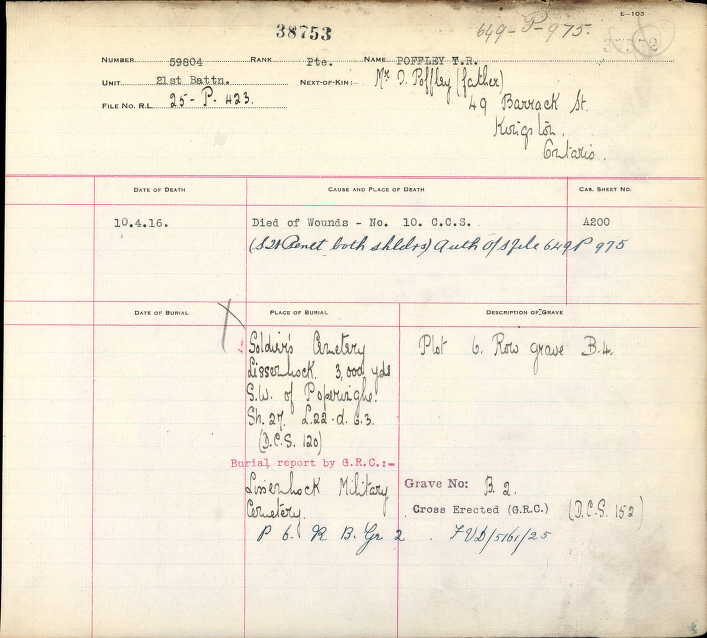 38753
649-P-975.
E-103
NUMBER 59804 RANK Pte. NAME POFFLEY T.R.
UNIT 21st Battn. NEXT-OF-KIN: Mr D. Poffley (father)
FILE NO. R.L. 25-P. 423. 49 Barrack St.
Kingston.
Ontario.
DATE OF DEATH CAUSE AND PLACE OF DEATH CAS. SHEET NO.
10.4.16. Died of Wounds - No. 10. C.C.S. A200
(S W Penet. both shldrs) Auth O/S file 649 P 975
DATE OF BURIAL PLACE OF BURIAL DESCRIPTION OF GRAVE
Soldier's Cemetery Plot 6. Row grave B.4.
Lissenhock 3,000 yds
S.W. of Poperinghe.
Sh. 27. L.22.d. 6.3.
(D.C.S. 120)
Burial report by G.R.C.:-
Lissenhock Military Grave No: B 2.
Cemetery. Cross Erected (G.R.C.) (D.C.S. 152)
P 6. R B. Gr 2 . FVD/5161/25